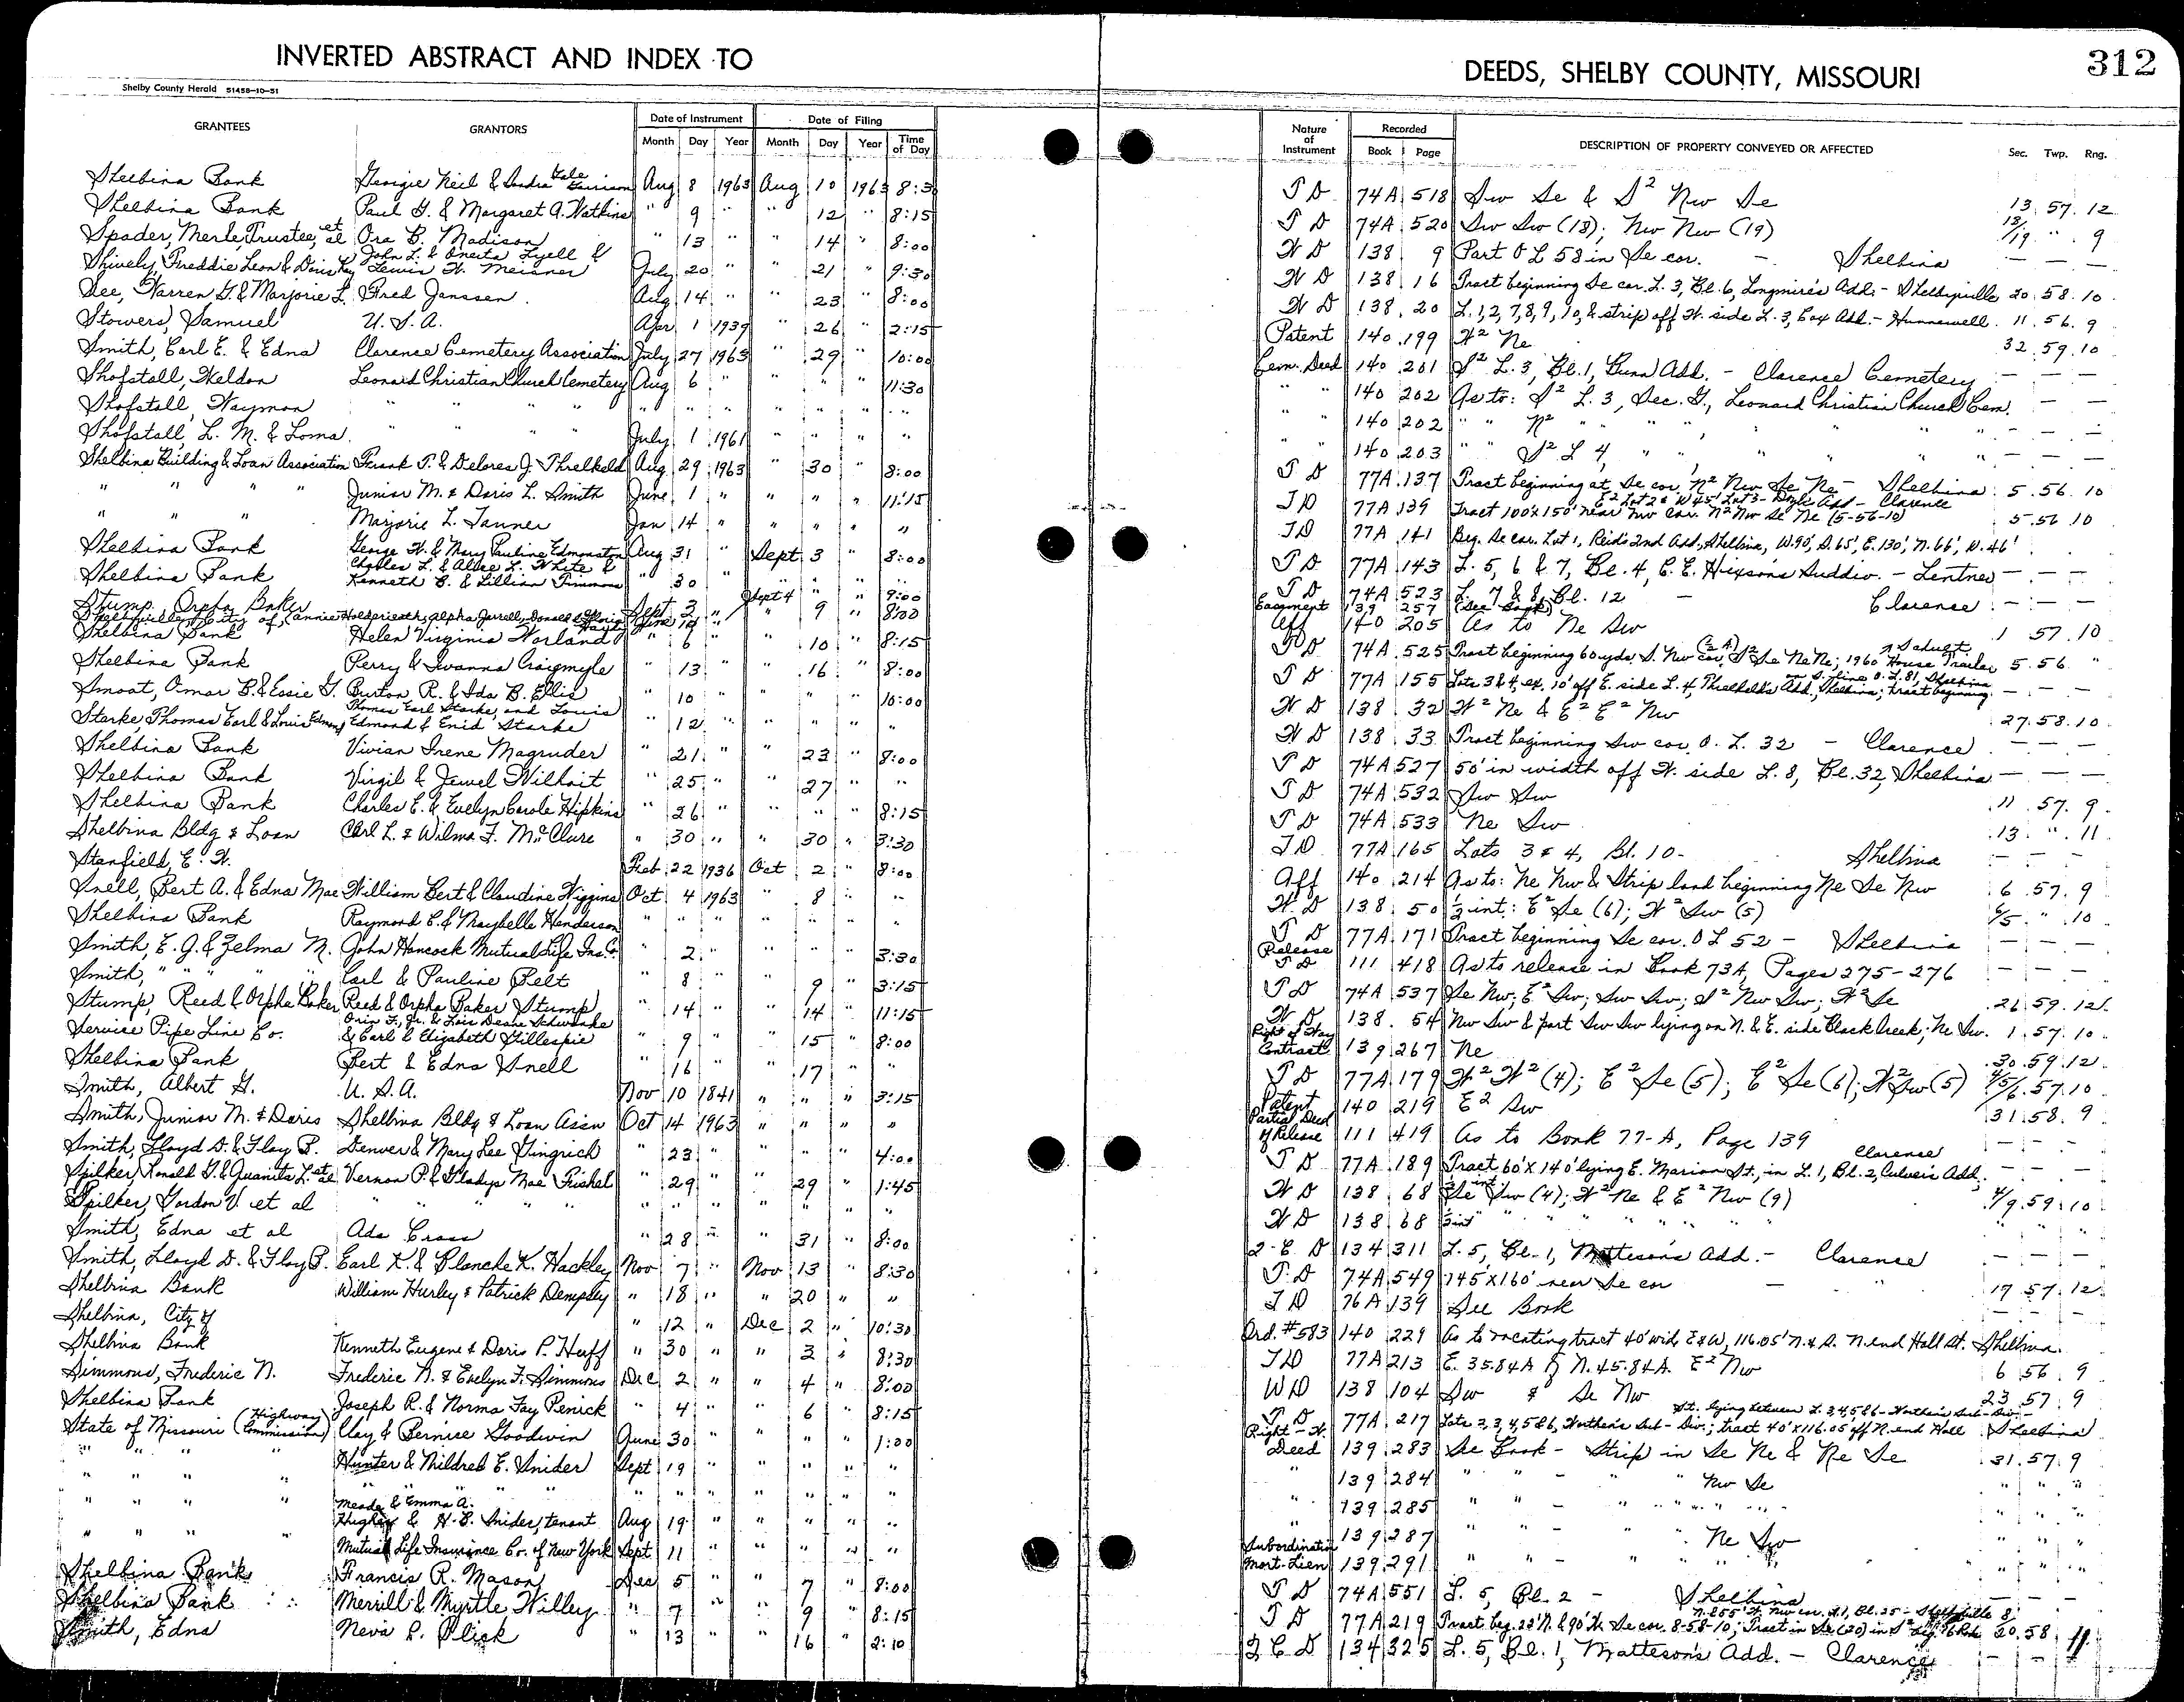 INVERTED ABSTRACT AND INDEX TO
DEEDS, SHELBY COUNTY, MISSOURI
312
Shelby County Herald 51458-10-51
GRANTEES GRANTORS Date of Instrument Date of Filing Nature of Instrument Recorded DESCRIPTION OF PROPERTY CONVEYED OR AFFECTED Sec. Twp. Rng.
Month Day Year Month Day Year Time of Day Book Page
Shelbina Bank Georgie Neil & Sondra Gale Garrison Aug 8 1963 Aug 10 1963 8:3 T D 74A 518 Sw Se & S² Nw Se 13 57 12
Shelbina Bank Paul G. & Margaret A. Watkins " 9 " " 12 " 8:15 T D 74A 520 Sw Sw (18); Nw Nw (19) 18/19 " 9
Spader, Merle, Trustee, et al Ora B. Madison " 13 " " 14 " 8:00 W D 138 9 Part O L 58 in Se cor. - Shelbina — — —
Shively, Freddie Leon & Doris Kay John L. & Oneta Lyell & Lewis W. Meisner July 20 " " 21 " 9:30 W D 138 16 Tract beginning Se cor. L. 3, Bl. 6, Longmire's Add. - Shelbyville 20 58 10
See, Warren G. & Marjorie L. Fred Janssen Aug 14 " " 23 " 8:00 W D 138 20 L. 1, 2, 7, 8, 9, 10, & strip off W. side L. 3, Cox Add. - Hunnewell 11 56 9
Stowers, Samuel U. S. A. Apr 1 1939 " 26 " 2:15 Patent 140 199 W² Ne 32 59 10
Smith, Earl E. & Edna Clarence Cemetery Association July 27 1963 " 29 " 10:00 Cem. Deed 140 201 S² L. 3, Bl. 1, Gunn Add. - Clarence Cemetery — — —
Shofstall, Weldon Leonard Christian Church Cemetery Aug 6 " " " " 11:30 " " 140 202 As to: S² L. 3, Sec. G., Leonard Christian Church Cem. — —
Shofstall, Waymon " " " " " " " " " " " " " 140 202 " " N² " " " " " " — — —
Shofstall, L. M. & Loma " " " " July 1 1961 " " " " " " 140 203 " " S² L 4, " " " " " — — —
Shelbina Building & Loan Association Frank T. & Delores J. Threlkeld Aug 29 1963 " 30 " 8:00 T D 77A 137 Tract beginning at Se cor. N² Nw Se Ne - Shelbina 5 56 10
" " " " Junior M. & Doris L. Smith June 1 " " " " 11:15 T D 77A 139 E² Lot 2 & W 45' Lot 3 - Doyle Add - Clarence Tract 100'x150' near Nw cor. N² Nw Se Ne (5-56-10) 5 56 10
" " " Marjorie L. Tanner Jan 14 " " " " " T D 77A 141 Beg. Se cor. Lot 1, Reid's 2nd Add, Shelbina, W. 90', S. 65', E. 130', N. 66', W. 46'
Shelbina Bank George W. & Mary Pauline Edmonston Aug 31 " Sept 3 " 8:00 T D 77A 143 L. 5, 6 & 7, Bl. 4, C. E. Hixson's Subdiv. - Lentner — — —
Shelbina Bank Charles L. & Alice L. White & Kenneth B. & Lillian Timmons " 30 " Sept 4 " 9:00 T D 74A 523 L. 7 & 8, Bl. 12 - Clarence — — —
Stump, Orpha Baker Sept 3 " " 9 " 8:00
Shelbyville, City of, Easement 139 257 (See Book)
Aff 140 205 As to Ne Sw 1 57 10
Shelbina Bank Helen Virginia Norland " 6 " " 10 " 8:15 T D 74A 525 Tract beginning 60 yds. S. Nw cor. S² Se Ne Ne; 1960 House Trailer 5 56 "
Shelbina Bank Perry & Ivanna Craigmyle " 13 " " 16 " 8:00 T D 77A 155 Lots 3 & 4, ex. 10' off E. side L. 4, Threlkeld's Add, Shelbina; tract beginning on S. line O. L. 81, Shelbina — — —
Smoot, Omar B. & Essie G. Burton R. & Ida B. Ellis " 10 " " " " 10:00 W D 138 32 W² Ne & E² E² Nw 27 58 10
Starke, Thomas Earl & Louis Edmond Thomas Earl Starke, and Louis Edmond & Enid Starke " 12 " " " " " W D 138 33 Tract beginning Sw cor. O. L. 32 - Clarence — — —
Shelbina Bank Vivian Irene Magruder " 21 " " 23 " 8:00 T D 74A 527 50' in width off W. side L. 8, Bl. 32, Shelbina — — —
Shelbina Bank Virgil & Jewel Wilhoit " 25 " " 27 " " T D 74A 532 Sw Sw 11 57 9
Shelbina Bank Charles E. & Evelyn Carole Hipkins " 26 " " " " 8:15 T D 74A 533 Ne Sw 13 " 11
Shelbina Bldg & Loan Carl L. & Wilma F. McClure " 30 " " 30 " 3:30 T D 77A 165 Lots 3 & 4, Bl. 10 - Shelbina — — —
Stanfield, E. W. Feb 22 1936 Oct 2 " 8:00 Aff 140 214 As to: Ne Nw & Strip land beginning Ne Se Nw 6 57 9
Snell, Bert A. & Edna Mae William Bert & Claudine Wiggins Oct 4 1963 " 8 " " W. D 138 50 ½ int: E² Se (6); W² Sw (5) 6/5 " 10
Shelbina Bank Raymond C. & Maybelle Henderson " " " " " " " T D 77A 171 Tract beginning Se cor. O L 52 - Shelbina — — —
Smith, E. G. & Zelma M. John Hancock Mutual Life Ins. Co. " 2 " " " " 3:30 Release T D 111 418 As to release in Book 73A, Pages 275-276 — — —
Smith, " " " " Carl & Pauline Belt " 8 " " 9 " 3:15 T D 74A 537 Se Nw; E² Sw; Sw Sw; S² Nw Sw; W² Se 26 59 12
Stump, Reed & Orpha Baker Reed & Orpha Baker Stump " 14 " " 14 " 11:15 W D 138 54 Nw Sw & part Sw Sw lying on N. & E. side Black Creek; Ne Sw 1 57 10
Service Pipe Line Co. Orin F., Jr. & Lois Deane Schwenke & Earl & Elizabeth Gillespie " 9 " " 15 " 8:00 Right of Way Contract 139 267 Ne 30 59 12
Shelbina Bank Bert & Edna Snell " 16 " " 17 " " T D 77A 179 W² W² (4); E² Se (5); E² Se (6); W² Sw (5) 4/5/6 57 10
Smith, Albert G. U. S. A. Nov 10 1841 " " " 3:15 Patent 140 219 E² Sw 31 58 9
Smith, Junior M. & Doris Shelbina Bldg & Loan Assn Oct 14 1963 " " " " Partial Deed of Release 111 419 As to Book 77-A, Page 139 — — —
Smith, Lloyd D. & Floy B. Denver & Mary Lee Gingrich " 23 " " " " 4:00 T D 77A 189 Tract 60' X 140' lying E. Marion St., in L. 1, Bl. 2, Culver's Add. Clarence — — —
Spilker, Ronald G. & Quanita L. et al Vernon P. & Gladys Mae Frishel " 29 " " 29 " 1:45 W D 138 68 ½ int Se Sw (4); W² Ne & E² Nw (9) 4/9 59 10
Spilker, Gordon V. et al " " " " " " " " " " " W D 138 68 ½ int " " " " " " " " "
Smith, Edna et al Ada Crass " 28 " " 31 " 8:00 2-C D 134 311 L. 5, Bl. 1, Matteson's Add. - Clarence — — —
Smith, Lloyd D. & Floy B. Earl K. & Blanche K. Hackley Nov 7 " Nov 13 " 8:30 T. D 74A 549 145' X 160' near Se cor - " 17 57 12
Shelbina Bank William Hurley & Patrick Dempsey " 18 " " 20 " " T D 76A 139 See Book — — —
Shelbina, City of " 12 " Dec 2 " 10:30 Ord. #583 140 229 As to vacating tract 40' wide E & W, 116.05' N. & S. N. end Hall St. Shelbina
Shelbina Bank Kenneth Eugene & Doris P. Huff " 30 " " 3 " 8:30 T D 77A 213 E. 35.84A of N. 45.84A. E² Nw 6 56 9
Simmons, Frederic N. Frederic N. & Evelyn F. Simmons Dec 2 " " 4 " 8:00 W D 138 104 Sw & Se Nw 23 57 9
Shelbina Bank Joseph R. & Norma Fay Penick " 4 " " 6 " 8:15 T D 77A 217 Lots 2, 3, 4, 5 & 6, Northern Sub-Div.; tract 40' X 116.05' off N. end Hall St. lying between L. 3, 4, 5 & 6 - Northern Sub-Div. - Shelbina
State of Missouri (Highway Commission) Clay & Bernice Goodwin June 30 " " " " 1:00 Right-W. Deed 139 283 See Book - Strip in Se Ne & Ne Se 31 57 9
" " " " Hunter & Mildred E. Snider Sept 19 " " " " " " 139 284 " " - " " Nw Se " " "
" " " " " " " " " " " " " " " " " 139 285 " " - " " " " " " "
" " " " Meade & Emma A. Hughes & H. E. Snider, tenant Aug 19 " " " " " " 139 287 " " - " " Ne Sw " " "
" " " " Mutual Life Insurance Co. of New York Sept 11 " " " " " Subordination Mort-Lien 139 291 " " - " " " " " " "
Shelbina Bank Francis R. Mason Dec 5 " " 7 " 8:00 T D 74A 551 L. 5, Bl. 2 - Shelbina
Shelbina Bank Merrill & Myrtle Willey " 7 " " 9 " 8:15 T D 77A 219 Tract beg. 22' N. & 90' W. Se cor. 8-58-10; Tract in Se (20) 20 58
Smith, Edna Neva L. Plick " 13 " " 16 " 2:10 2 C D 134 325 L. 5, Bl. 1, Matteson's Add. - Clarence — — 11